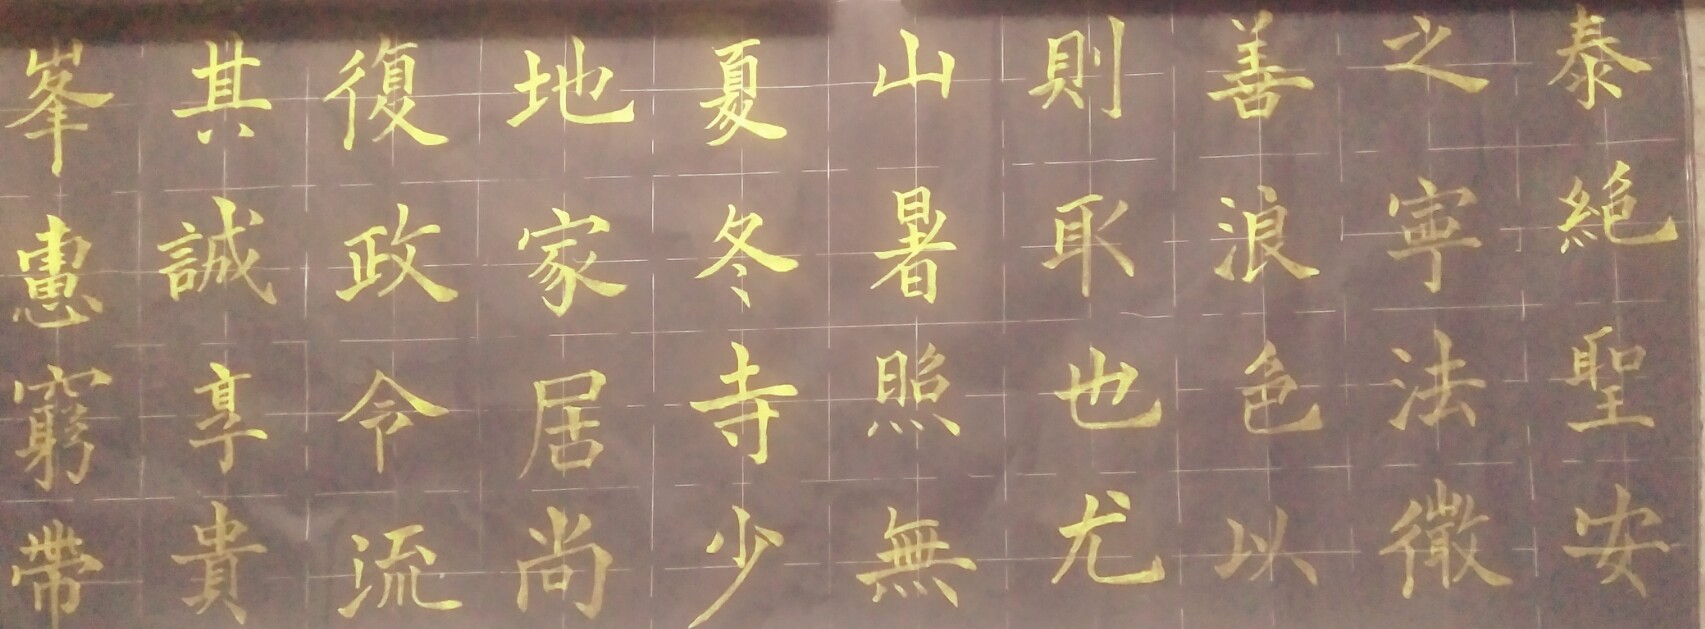 泰絕聖安
之寧法徽
善浪色以
則耴也尤
山暑照無
夏冬寺少
地家居尚
復政令流
其誠享貴
峯憲窮帶